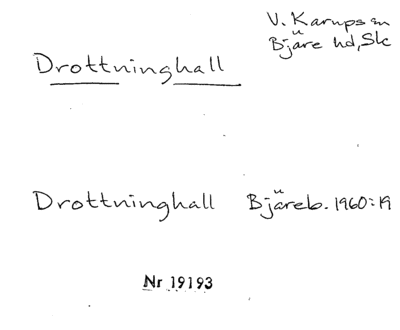 V. Karups sn
Bjäre hd, Sk
Drottninghall
Drottninghall Bjäreb. 1960:19
Nr 19193